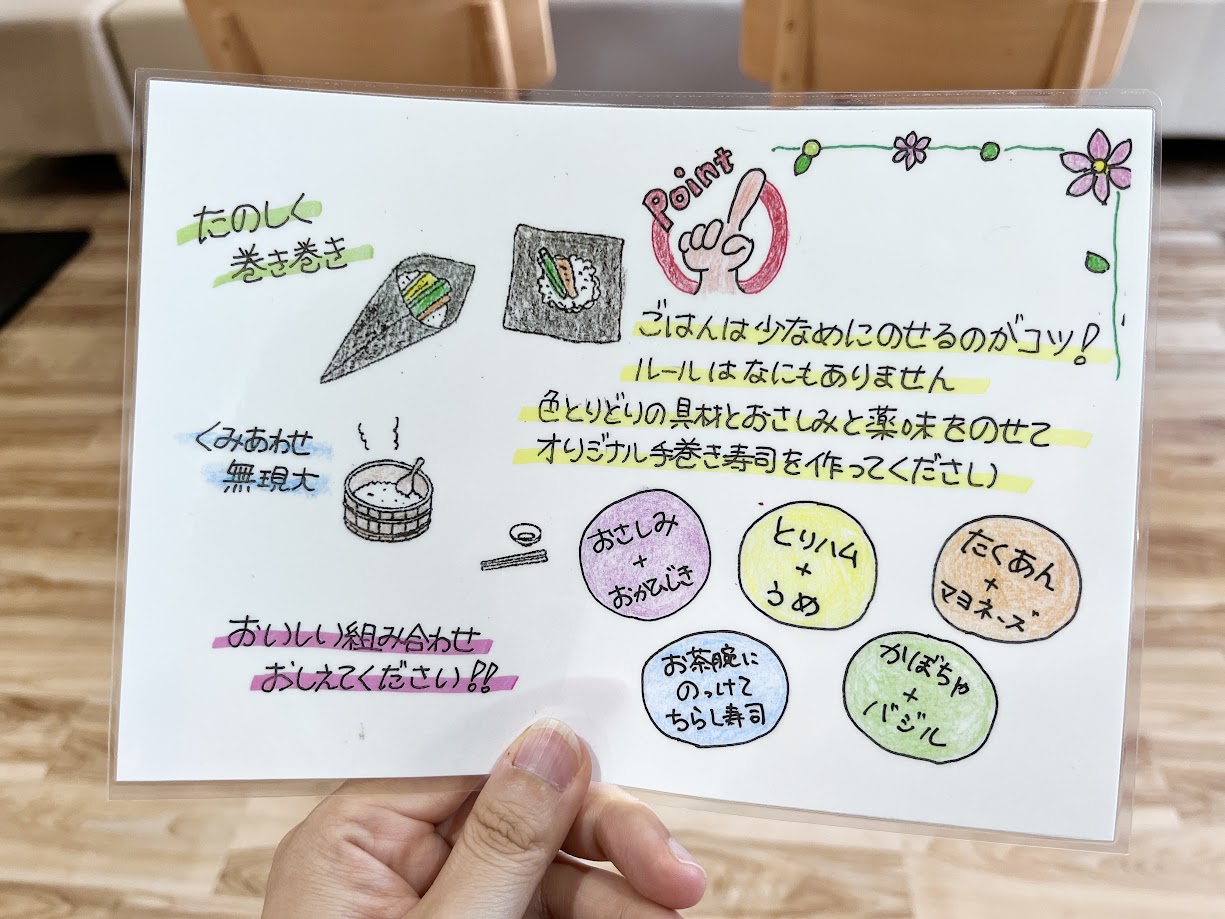 たのしく
巻き巻き
Point
ごはんは少なめにのせるのがコツ!
ルールはなにもありません
色とりどりの具材とおさしみと薬味をのせて
オリジナル手巻き寿司を作ってください
くみあわせ
無現大
おさしみ
+
おかひじき
とりハム
+
うめ
たくあん
+
マヨネーズ
お茶腕に
のっけて
ちらし寿司
かぼちゃ
+
バジル
おいしい組み合わせ
おしえてください!!